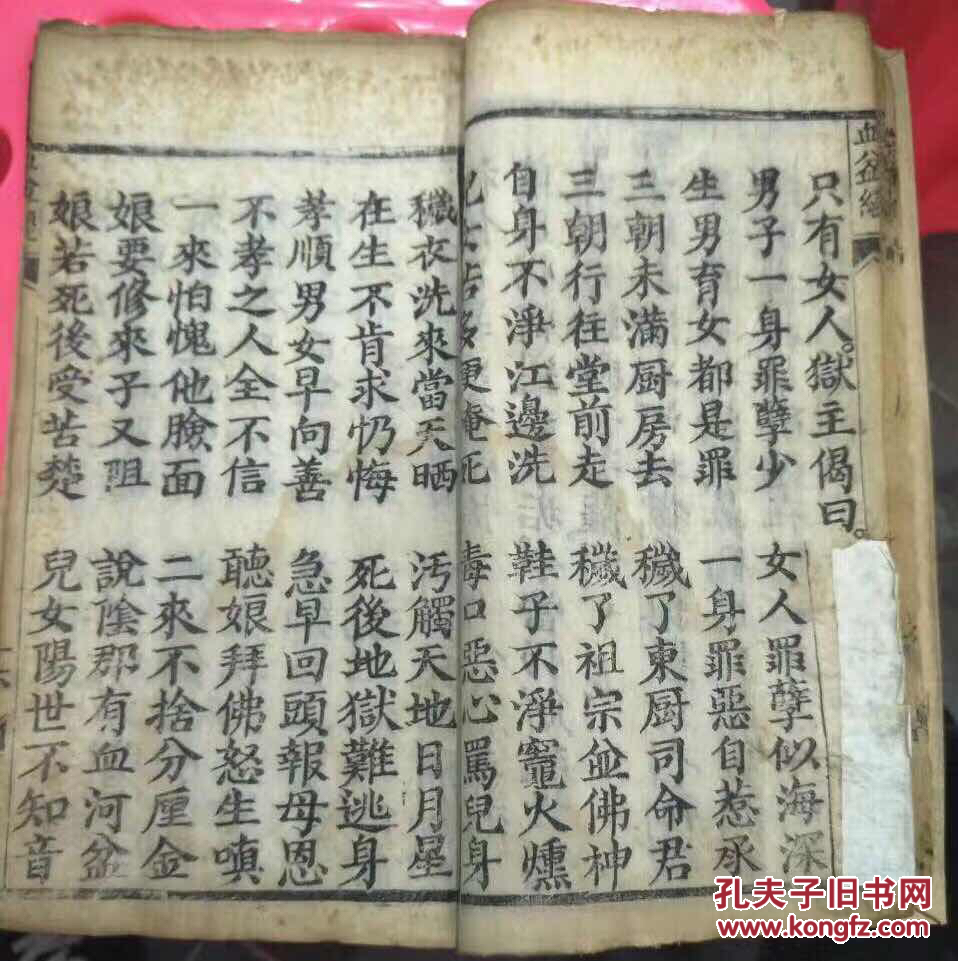 血盆經
只有女人。獄主偈曰。
男子一身罪孽少　女人罪孽似海深
生男育女都是罪　一身罪惡自惹承
三朝未滿厨房去　穢了東厨司命君
三朝行往堂前走　穢了祖宗並佛神
自身不淨江邊洗　鞋子不淨竈火燻
毒口惡心罵兒身
穢衣洗來當天晒　汚觸天地日月星
在生不肯求忏悔　死後地獄難逃身
孝順男女早向善　急早回頭報母恩
不孝之人全不信　聽娘拜佛怒生嗔
一來怕愧他臉面　二來不捨分厘金
娘要修來子又阻　說陰郡有血河盆
娘若死後受苦楚　兒女陽世不知音
孔夫子旧书网
www.kongfz.com